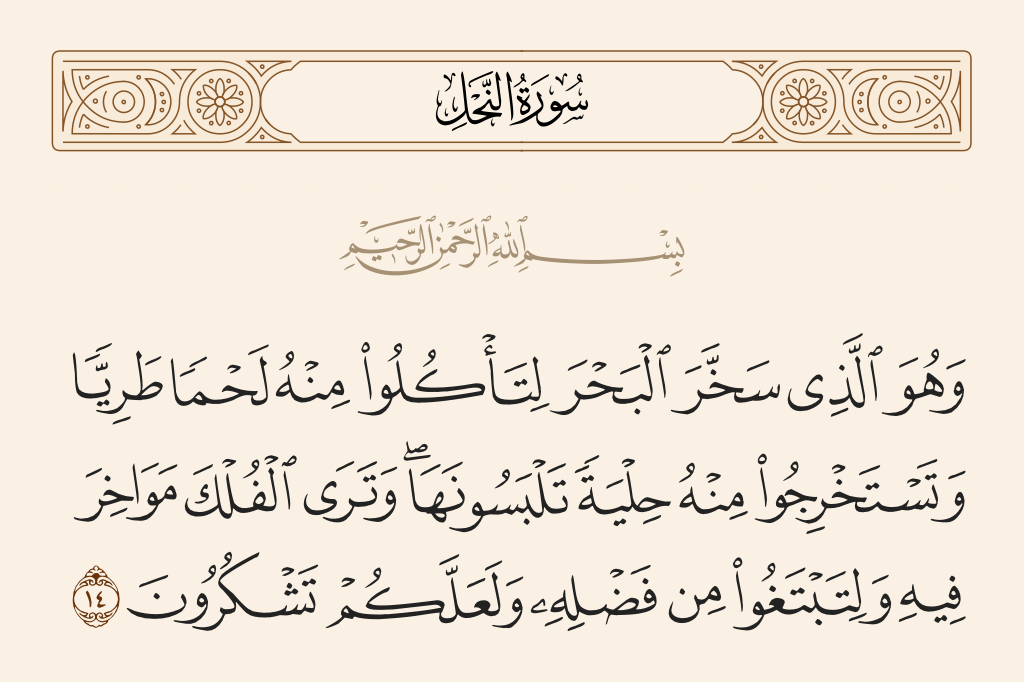 سُورَةُ النَّحْلِ
بِسْمِ ٱللَّهِ ٱلرَّحْمَٰنِ ٱلرَّحِيمِ
وَهُوَ ٱلَّذِى سَخَّرَ ٱلْبَحْرَ لِتَأْكُلُوا۟ مِنْهُ لَحْمًا طَرِيًّا
وَتَسْتَخْرِجُوا۟ مِنْهُ حِلْيَةً تَلْبَسُونَهَا ۖ وَتَرَى ٱلْفُلْكَ مَوَاخِرَ
فِيهِ وَلِتَبْتَغُوا۟ مِن فَضْلِهِۦ وَلَعَلَّكُمْ تَشْكُرُونَ ١٤